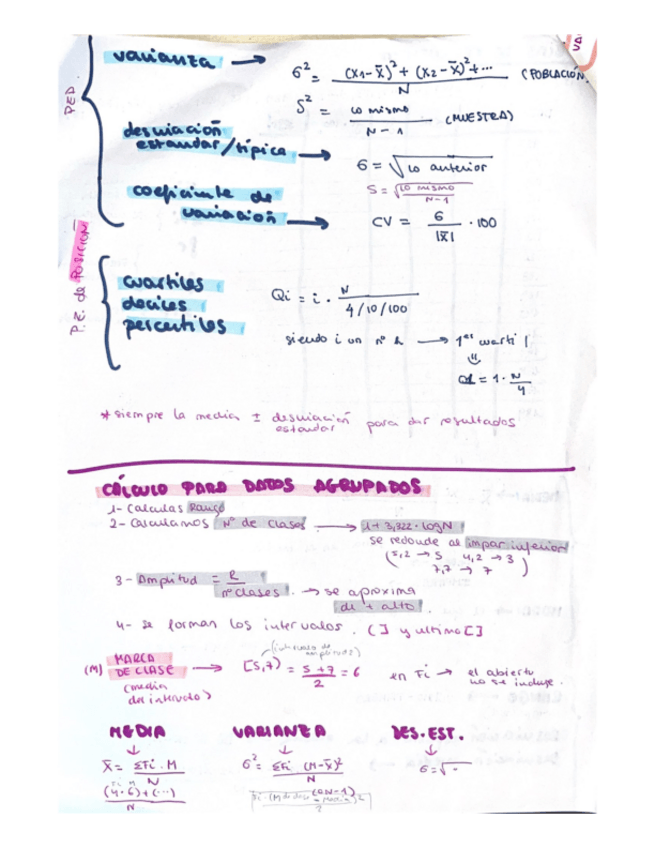 VA
P.E.D.
varianza → σ² = (x₁-x̄)² + (x₂-x̄)² + ... / N (POBLACIÓN)
S² = lo mismo / N-1 (MUESTRA)
desviación
estandar/típica → σ = √lo anterior
S = √lo mismo / N-1
coeficiente de
variación → CV = σ / |x̄| · 100
P.E. de POSICIÓN
cuartiles
deciles
percentiles
Qi = i · N / 4/10/100
siendo i un nº → 1er cuartil
Q1 = 1 · N/4
* siempre la media ± desviación estandar para dar resultados
CÁLCULO PARA DATOS AGRUPADOS
1- Calculas Rango
2- Calculamos Nº de clases → 1+3,322·logN
se redonde al impar inferior
(5,2 → 5 4,2 → 3
7,7 → 7)
3- Amplitud = R / nº clases → se aproxima
de + alto
4- se forman los intervalos. ( ] y ultimo [ ]
(intervalo de amplitud 2)
(M) MARCA DE CLASE → [5,7) = 5+7 / 2 = 6 en Fi → el abierto
no se incluye.
(media
del intervalo)
MEDIA VARIANZA DES.EST.
x̄ = ΣFi · M / N σ² = ΣFi · (M-x̄)² / N σ = √
Fi M
(4·6)+(...) / N (oN-1)